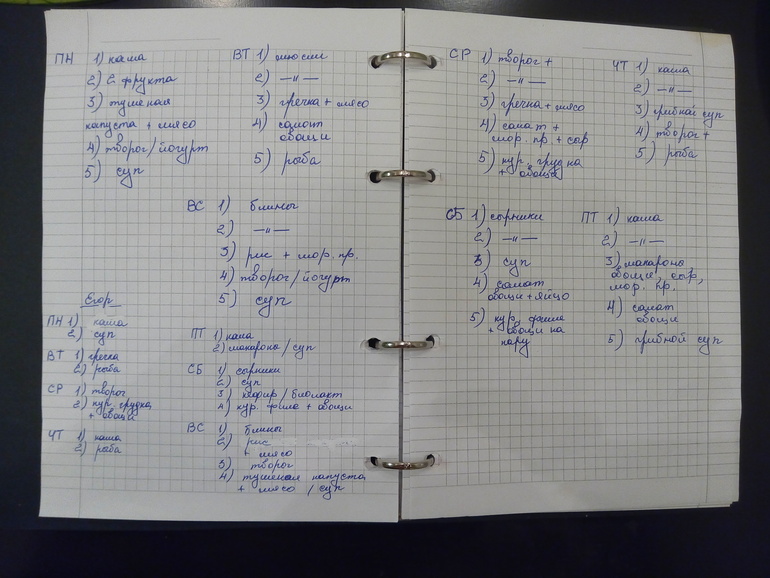 ПН 1) каша
2) 2 фрукта
3) тушеная
капуста + мясо
4) творог/йогурт
5) суп
ВТ 1) мюсли
2) —"—
3) гречка + мясо
4) салат
овощи
5) рыба
ВС 1) блины
2) —"—
3) рис + мор. пр.
4) творог/йогурт
5) суп
Егор
ПН 1) каша
2) суп
ВТ 1) гречка
2) рыба
СР 1) творог
2) кур. грудка
+ овощи
ЧТ 1) каша
2) рыба
ПТ 1) каша
2) макароны/суп
СБ 1) сырники
2) суп
3) кефир/биолакт
4) кур. филе + овощи
ВС 1) блины
2) рис
+ мясо
3) творог
4) тушеная капуста
+ мясо /суп
СР 1) творог +
2) —"—
3) гречка + мясо
4) салат +
мор. пр. + сыр
5) кур. грудка
+ овощи
ЧТ 1) каша
2) —"—
3) грибной суп
4) творог +
5) рыба
СБ 1) сырники
2) —"—
3) суп
4) салат
овощи + яйцо
5) кур. филе
+ овощи на
пару
ПТ 1) каша
2) —"—
3) макароны
овощи, сыр,
мор. пр.
4) салат
овощи
5) грибной суп